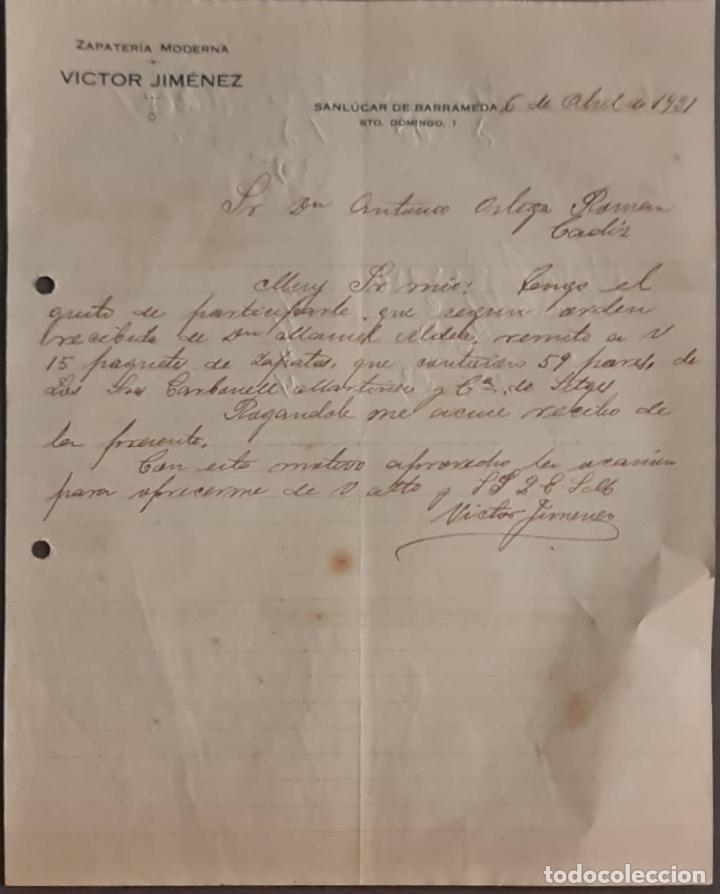 ZAPATERÍA MODERNA
VICTOR JIMÉNEZ
SANLÚCAR DE BARRAMEDA, 6 de Abril de 1921
STO. DOMINGO, 1
Sr Dn Antonio Ortega Roman
Cadiz
Muy Sr mio: Tengo el
gusto de participarle, que segun orden
recibida de Dn Manuel, remito a V
15 paquetes de zapatos, que contienen 59 pares, de
Los Sres Carbonell Martinez y Cª. de Sitges
Rogandole me acuse recibo de
la presente.
Con este motivo aprovecho la ocasion
para ofrecerme de V atto y S S Q E S M
Victor Jimenez
todocoleccion